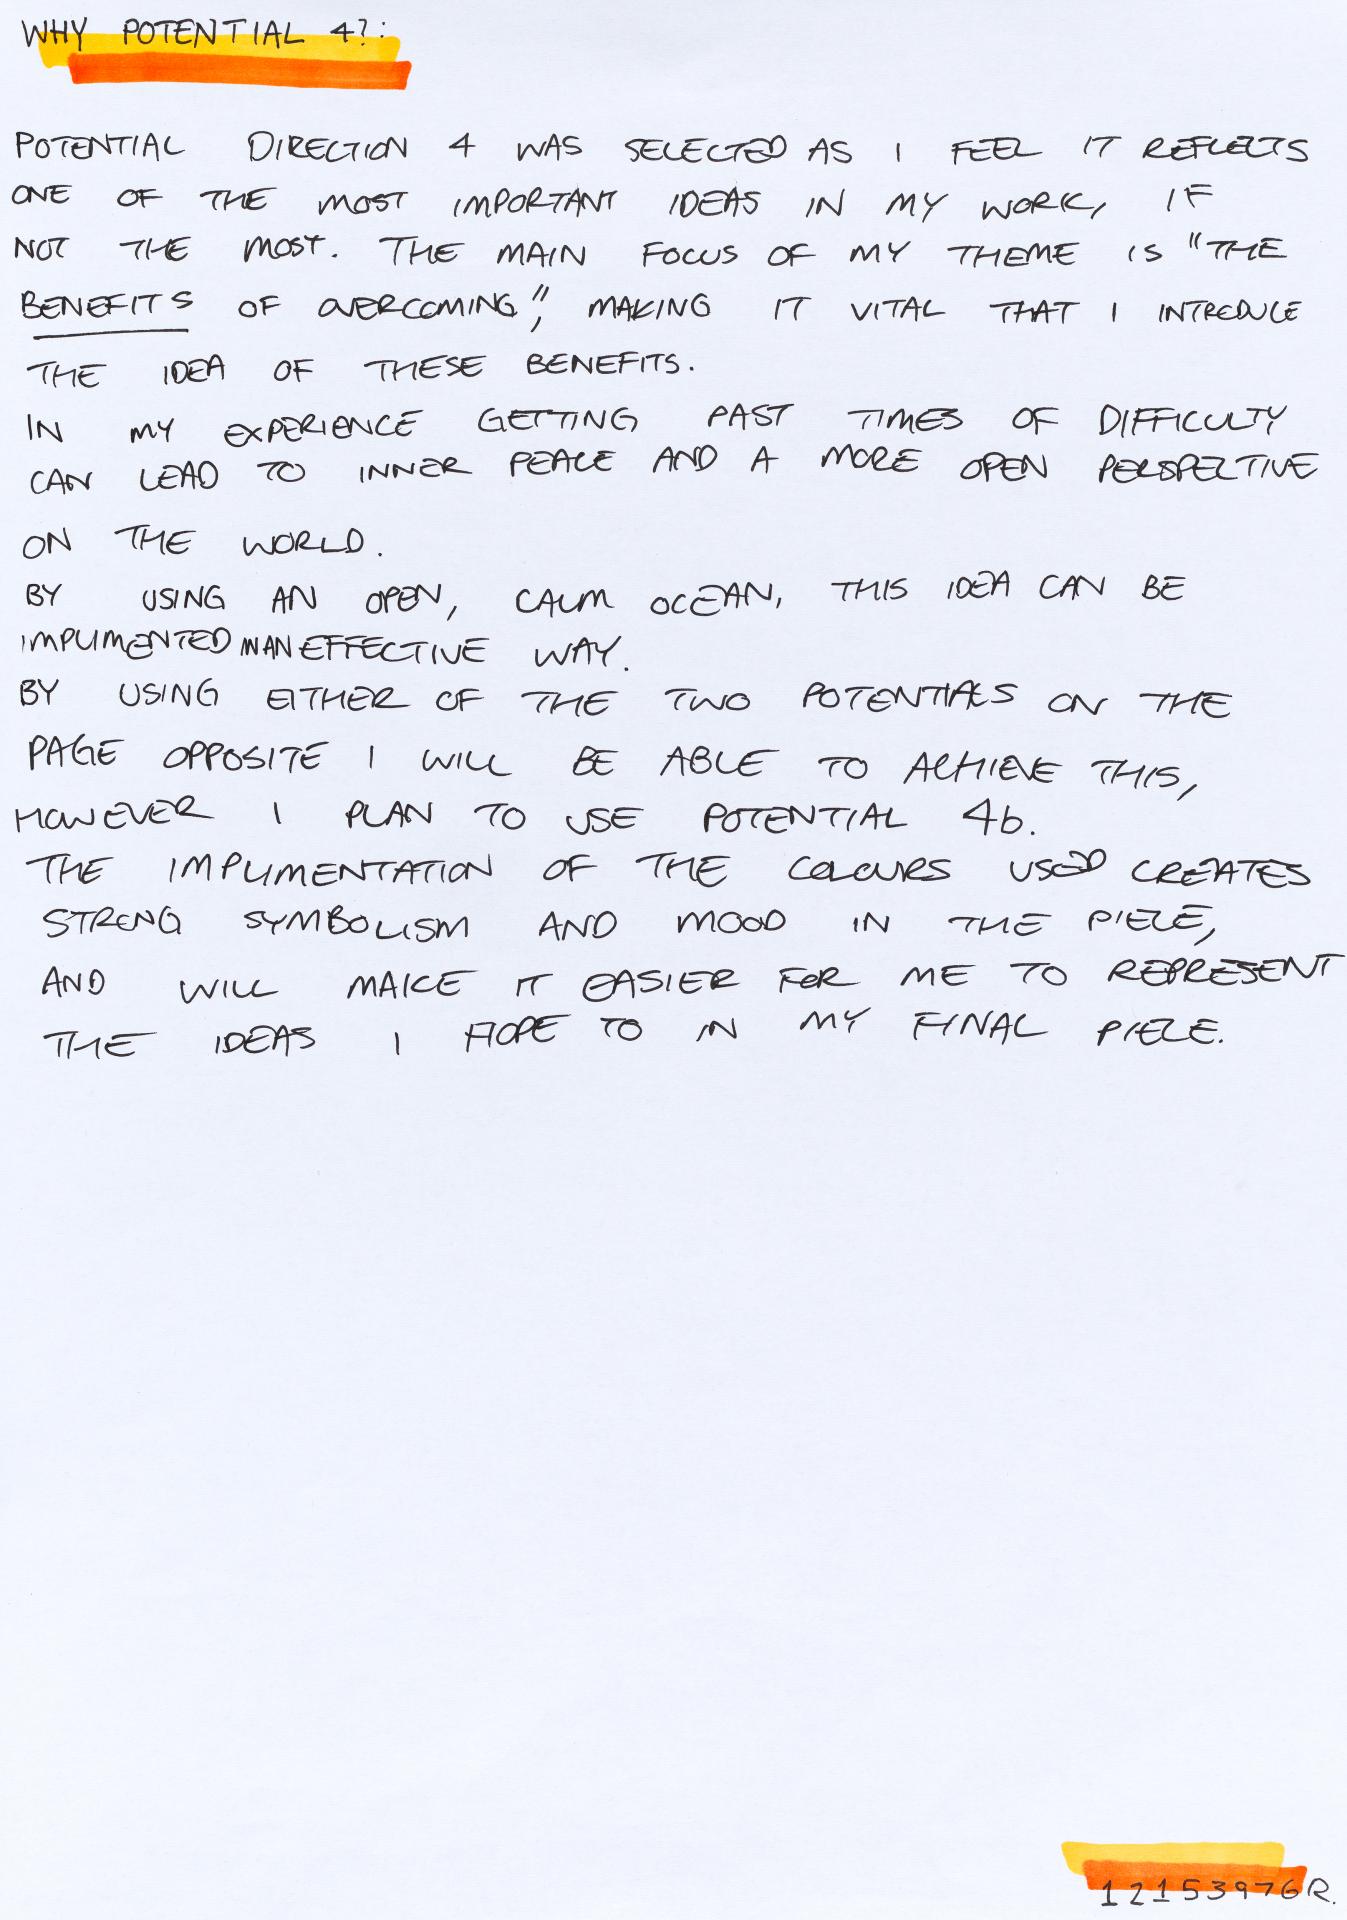 WHY POTENTIAL 4?:
POTENTIAL DIRECTION 4 WAS SELECTED AS I FEEL IT REFLECTS
ONE OF THE MOST IMPORTANT IDEAS IN MY WORK, IF
NOT THE MOST. THE MAIN FOCUS OF MY THEME IS "THE
BENEFITS OF OVERCOMING", MAKING IT VITAL THAT I INTRODUCE
THE IDEA OF THESE BENEFITS.
IN MY EXPERIENCE GETTING PAST TIMES OF DIFFICULTY
CAN LEAD TO INNER PEACE AND A MORE OPEN PERSPECTIVE
ON THE WORLD.
BY USING AN OPEN, CALM OCEAN, THIS IDEA CAN BE
IMPLIMENTED IN AN EFFECTIVE WAY.
BY USING EITHER OF THE TWO POTENTIALS ON THE
PAGE OPPOSITE I WILL BE ABLE TO ACHIEVE THIS,
HOWEVER I PLAN TO USE POTENTIAL 4b.
THE IMPLIMENTATION OF THE COLOURS USED CREATES
STRONG SYMBOLISM AND MOOD IN THE PIECE,
AND WILL MAKE IT EASIER FOR ME TO REPRESENT
THE IDEAS I HOPE TO IN MY FINAL PIECE.
12153976R.